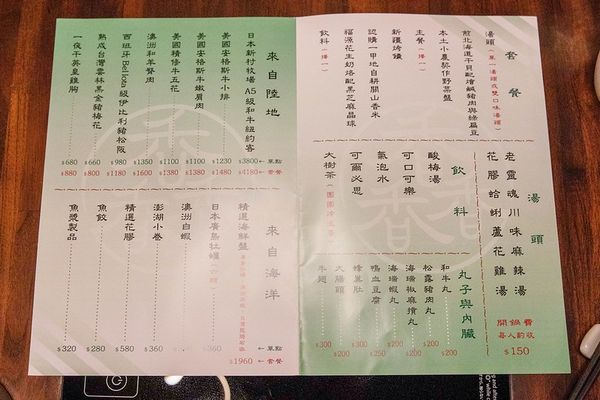 套餐
湯頭(單一湯頭或雙口味湯頭)
前北海道干貝配燴鹹豬肉與綠扁豆
本土小農契作野菜盤
主餐(擇一)
新疆烤饢
認購一甲地自耕關山香米
福源花生奶酪配黑芝麻晶球
飲料(擇一)
湯頭
老靈魂川味麻辣湯
花膠蛤蜊蘆花雞湯
開鍋費
每人酌收
$150
飲料
酸梅湯
可口可樂
氣泡水
可爾必思
大樹茶
丸子與內臟
和牛丸
松露豬肉丸
海瑞椒麻摃丸
海瑞蝦丸
鴨血豆腐
蜂巢肚
大腸頭
牛翅
$300
$200
$200
$200
$250
$300
$200
來自陸地
日本新村牧場A5級和牛紐約客 $3800 $4180
美國安格斯牛小排 $1230 $1480
美國安格斯牛嫩肩肉 $1100 $1380
美國精修牛五花 $1100 $1380
澳洲和羊臀肉 $1350 $1600
西班牙Bellota級伊比利豬松阪 $980 $1180
熟成台灣雲林黑金豬梅花 $660 $800
一夜干英皇雞胸 $680 $880
←單點
←套餐
來自海洋
精選海鮮盤 $1960
←套餐
日本廣島牡蠣
澳洲白蝦
澎湖小卷 $360
精選花膠 $580
魚餃 $280
魚漿製品 $320